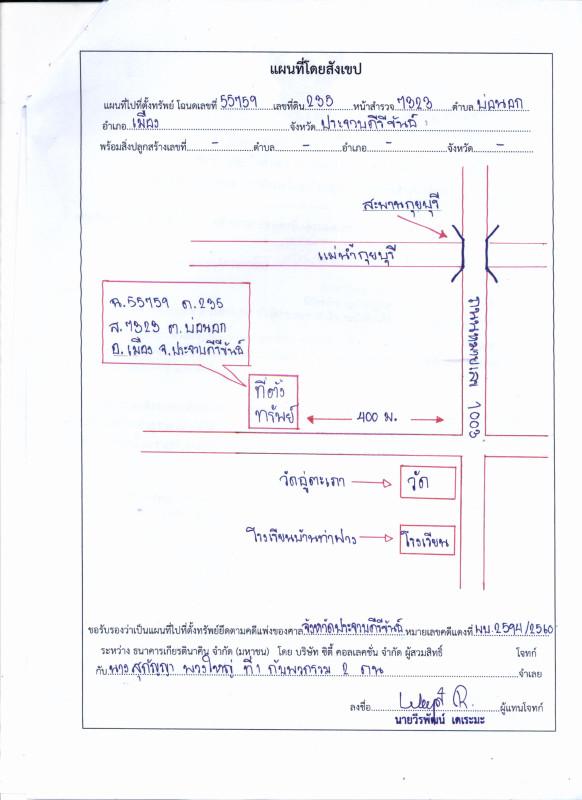 แผนที่โดยสังเขป
แผนที่ไปที่ตั้งทรัพย์ โฉนดเลขที่ 55759 เลขที่ดิน 235 หน้าสำรวจ 7323 ตำบล บ่อนอก
อำเภอ เมือง จังหวัด ประจวบคีรีขันธ์
พร้อมสิ่งปลูกสร้างเลขที่ - ตำบล - อำเภอ - จังหวัด -
สะพานกุยบุรี
แม่น้ำกุยบุรี
ฉ.55759 ด.235
ส.7323 ต.บ่อนอก
อ.เมือง จ.ประจวบคีรีขันธ์
ที่ตั้ง
ทรัพย์
400 ม.
1003
วัด
โรงเรียน
ขอรับรองว่าเป็นแผนที่ไปที่ตั้งทรัพย์ยึดตามคดีแพ่งของศาล จังหวัดประจวบคีรีขันธ์ หมายเลขคดีแดงที่ ผบ.2594/2560
ระหว่าง ธนาคารเกียรตินาคิน จำกัด (มหาชน) โดย บริษัท ซิตี้ คอลเลคชั่น จำกัด ผู้สวมสิทธิ์ โจทก์
กับ นางสุกัญญา พวงใหญ่ ที่1 กับพวกรวม 2 คน จำเลย
ลงชื่อ ผู้แทนโจทก์
นายวีรพัฒน์ เดเระมะ